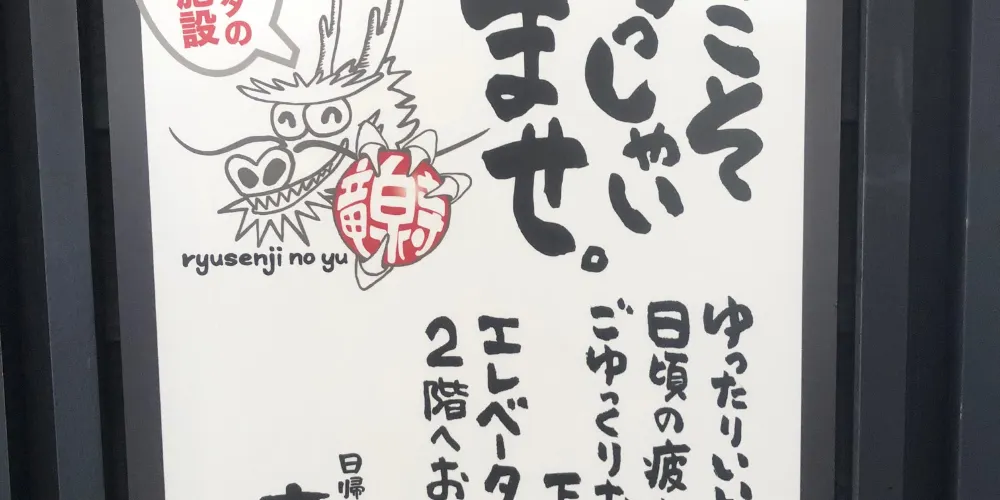 こそ
っしゃい
ませ。
の
設
竜泉寺
ryusenji no yu
ゆったりい
日頃の疲
ごゆっくり
エレベータ
2階へお
日帰